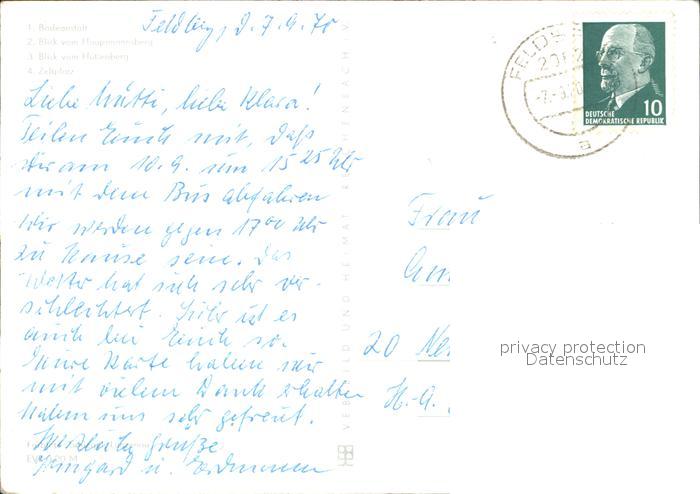 1. Badeanstalt
2. Blick vom Hauptmannsberg
3. Blick vom Hüttenberg
4. Zeltplatz
Feldbg., d. 7.9.70
Liebe Mutti, liebe Klara!
Teilen Euch mit, daß
wir am 10.9. um 15 25 Uhr
mit dem Bus abfahren
Wir werden gegen 17 00 Uhr
zu Hause sein. Das
Wetter hat sich sehr ver-
schlechtert. Sicher ist es
auch bei Euch so.
Eure Karte haben wir
mit vielem Dank erhalten
haben uns sehr gefreut.
Herzliche Grüße
Irmgard u. Erdmann
VEB BILD UND HEIMAT REICHENBACH i. V.
FELDB
201
-7.-9.70
a
10
DEUTSCHE
DEMOKRATISCHE REPUBLIK
Frau
20
H.-G.
privacy protection
Datenschutz